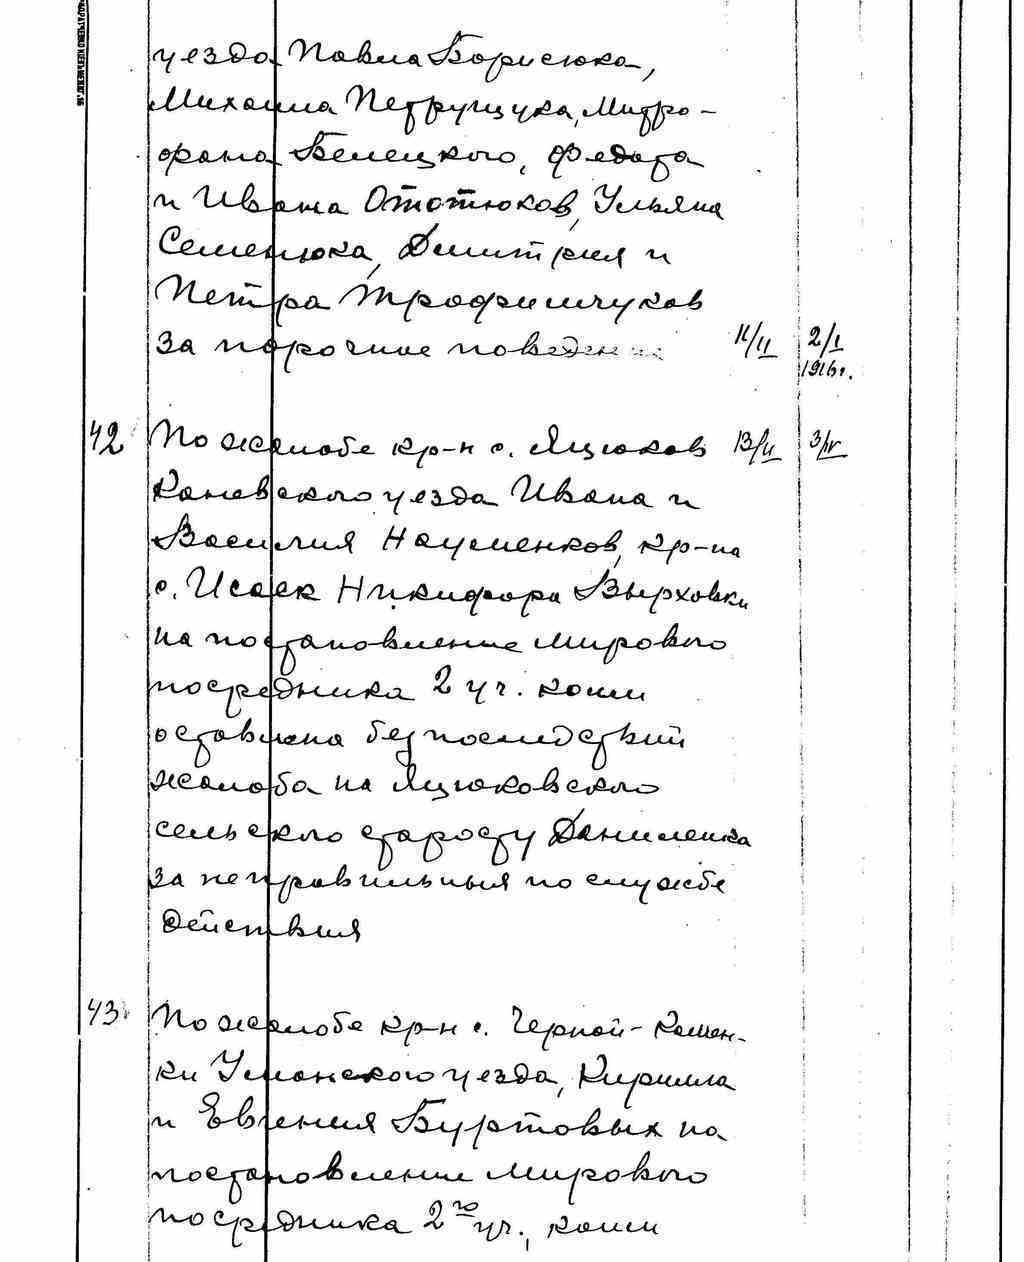 уезда Павла Борисюка,
Михаила Петрущука, Митро-
фана Белецкого, Федота
и Ивана Ототюков, Ульяна
Семенюка, Дмитрия и
Петра Трофимчуков
за порочное поведение 11/II 2/I
1916 г.
42 По жалобе кр-н с. Яцюков 13/II 3/IV
Каневского уезда Ивана и
Василия Науменков, кр-на
с. Исаек Никифора Вырховки
на постановление мирового
посредника 2 уч. коим
оставлена без последствий
жалоба на Яцюковского
сельского старосту Даниленка
за неправильныя по службе
действия
43 По жалобе кр-н с. Черной-Камен-
ки Уманского уезда, Кирилла
и Евгения Буртовых на
постановление мирового
посредника 2го уч., коим